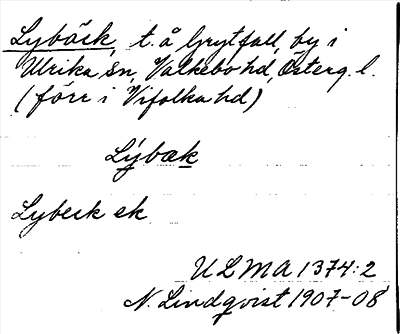 Lybäck, t. å Grytfall, by i
Ulrika sn, Valkebo hd, Österg. l.
(förr i Vifolka hd)
Lýbæk
Lybeck ek
ULMA 1374:2
N. Lindqvist 1907-08